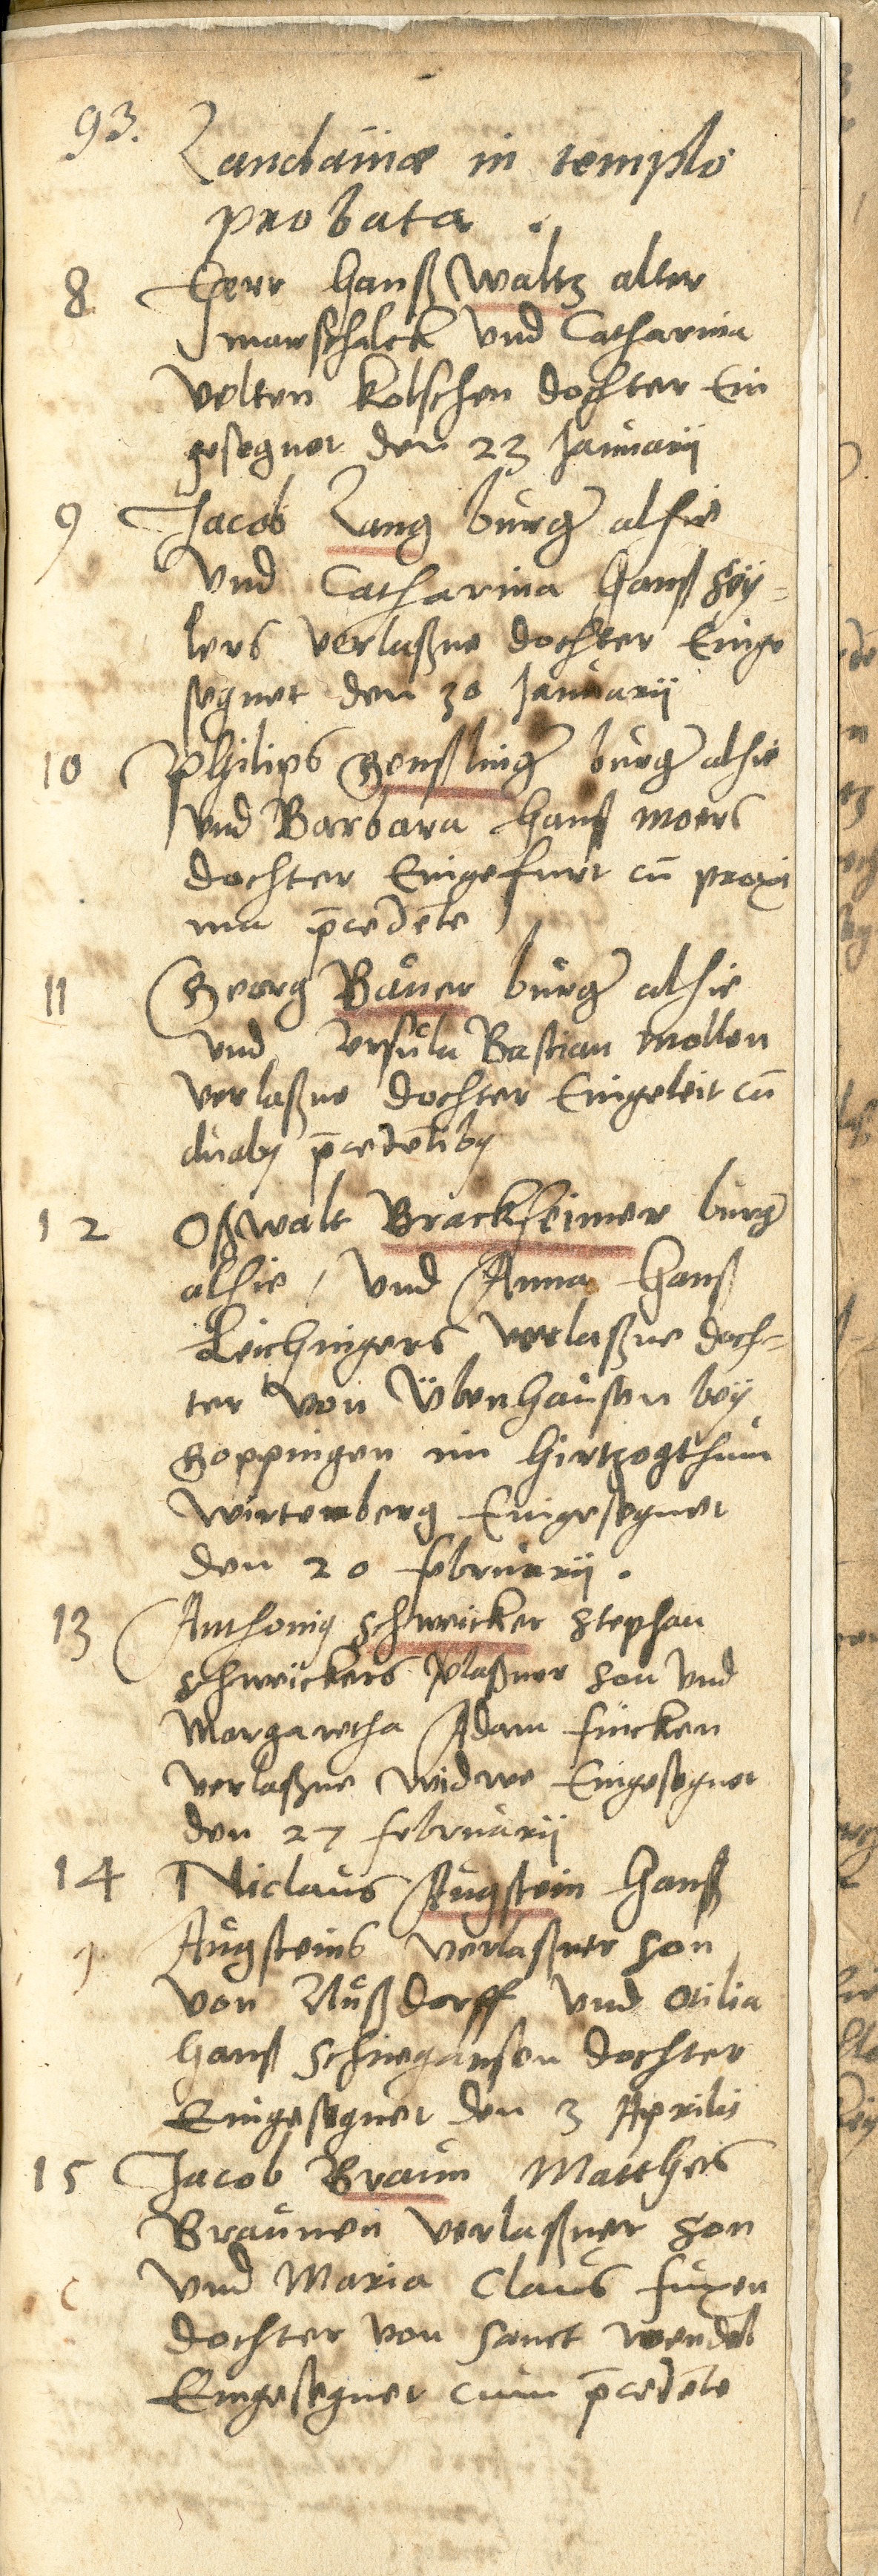 93.
Landauiæ in templo
probata.
8 Herr Hanß Waltz alter
marschalck vnd Catharina
Velten kolschen dochter Ein
gesegnet den 23 Januarij
9 Jacob Lang burger alhie
vnd Catharina Hanß Hey=
lers verlaßne dochter Einge
segnet den 30 Januarij
10 Philips Genßlinger burger alhie
vnd Barbara Hanß moers
dochter Eingefurt cū proxi
ma p̄cedēte
11 Georg Bauer burger alhie
vnd Vrsula Bastian mollen
verlaßne dochter Eingeleit cū
duab9 p̄cedētib9
12 Oßwalt Brackheimer burger
alhie / vnd Anna Hanß
Leichingers verlaßne doch=
ter von Übenhausen beÿ
Goppingen im Hertzogthum
Wirtemberg Eingesegnet
den 20 februarij.
13 Anthonig schweicker stephan
schweickers vlaßner son vnd
Margaretha Adam fincken
verlaßne widwe Eingesegnet
den 27 februarij
14 Niclaus Augstein Hanß
Augsteins verlaßner son
von Nußdorff vnd Otilia
Hanß Schnegansen dochter
Eingesegnet den 3 Aprilis
15 Jacob Braun Matthes
Braunen verlaßner son
vnd Maria Claus fuxen
dochter von Sanct wendel
Eingesegnet cum p̄cedēte